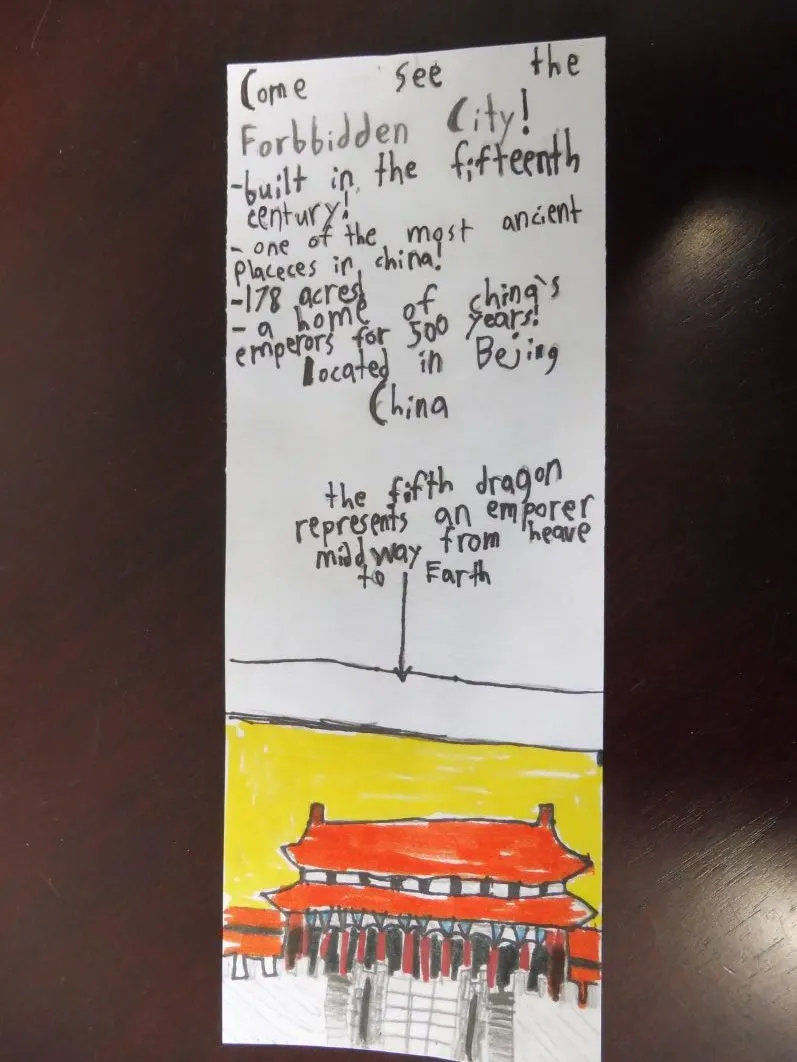 Come see the
Forbbidden City!
-built in the fifteenth
century!
- one of the most ancient
placeces in china!
-178 acres
- a home of china`s
emperors for 500 years!
located in Bejing
China
the fifth dragon
represents an emporer
midway from heave
to Earth